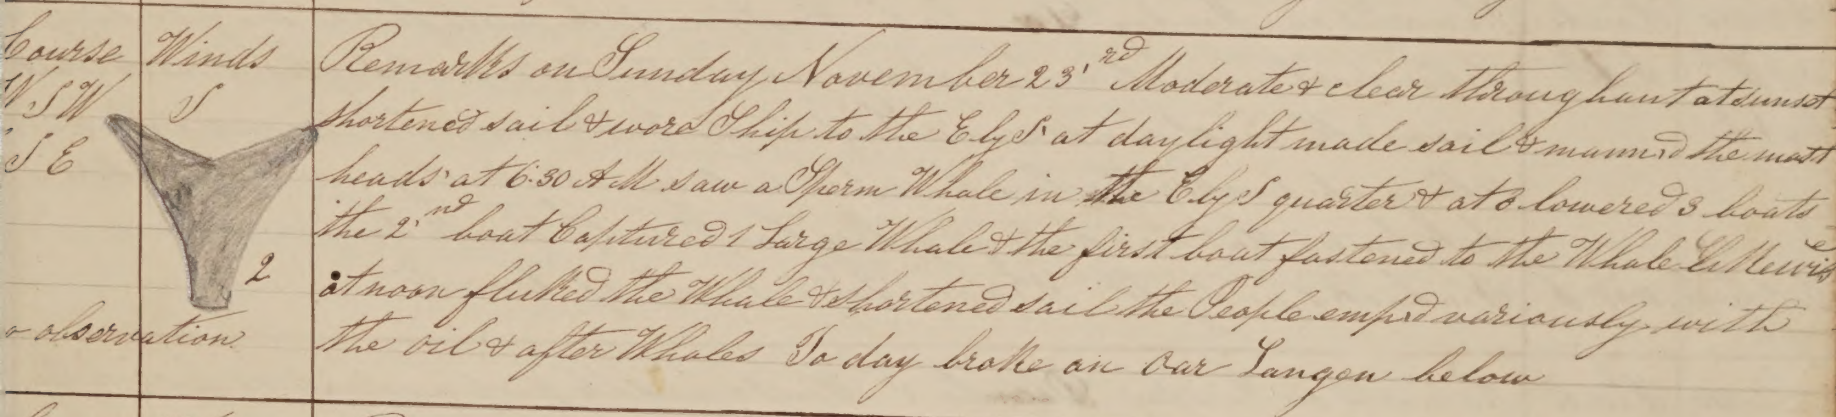 Course Winds
WSW S
SE
2
observation
Remarks on Sunday November 23rd Moderate & clear throughout at sunset
shortened sail & wore Ship to the E by S at daylight made sail & mann,d the mast
heads at 6.30 AM saw a Sperm Whale in the E by S quarter & at 8 lowered 3 boats
the 2nd boat Captured 1 Large Whale & the first boat fastened to the Whale likewise
at noon fluked the Whale & shortened sail the People emp,d variously with
the oil & after Whales To day broke an oar below